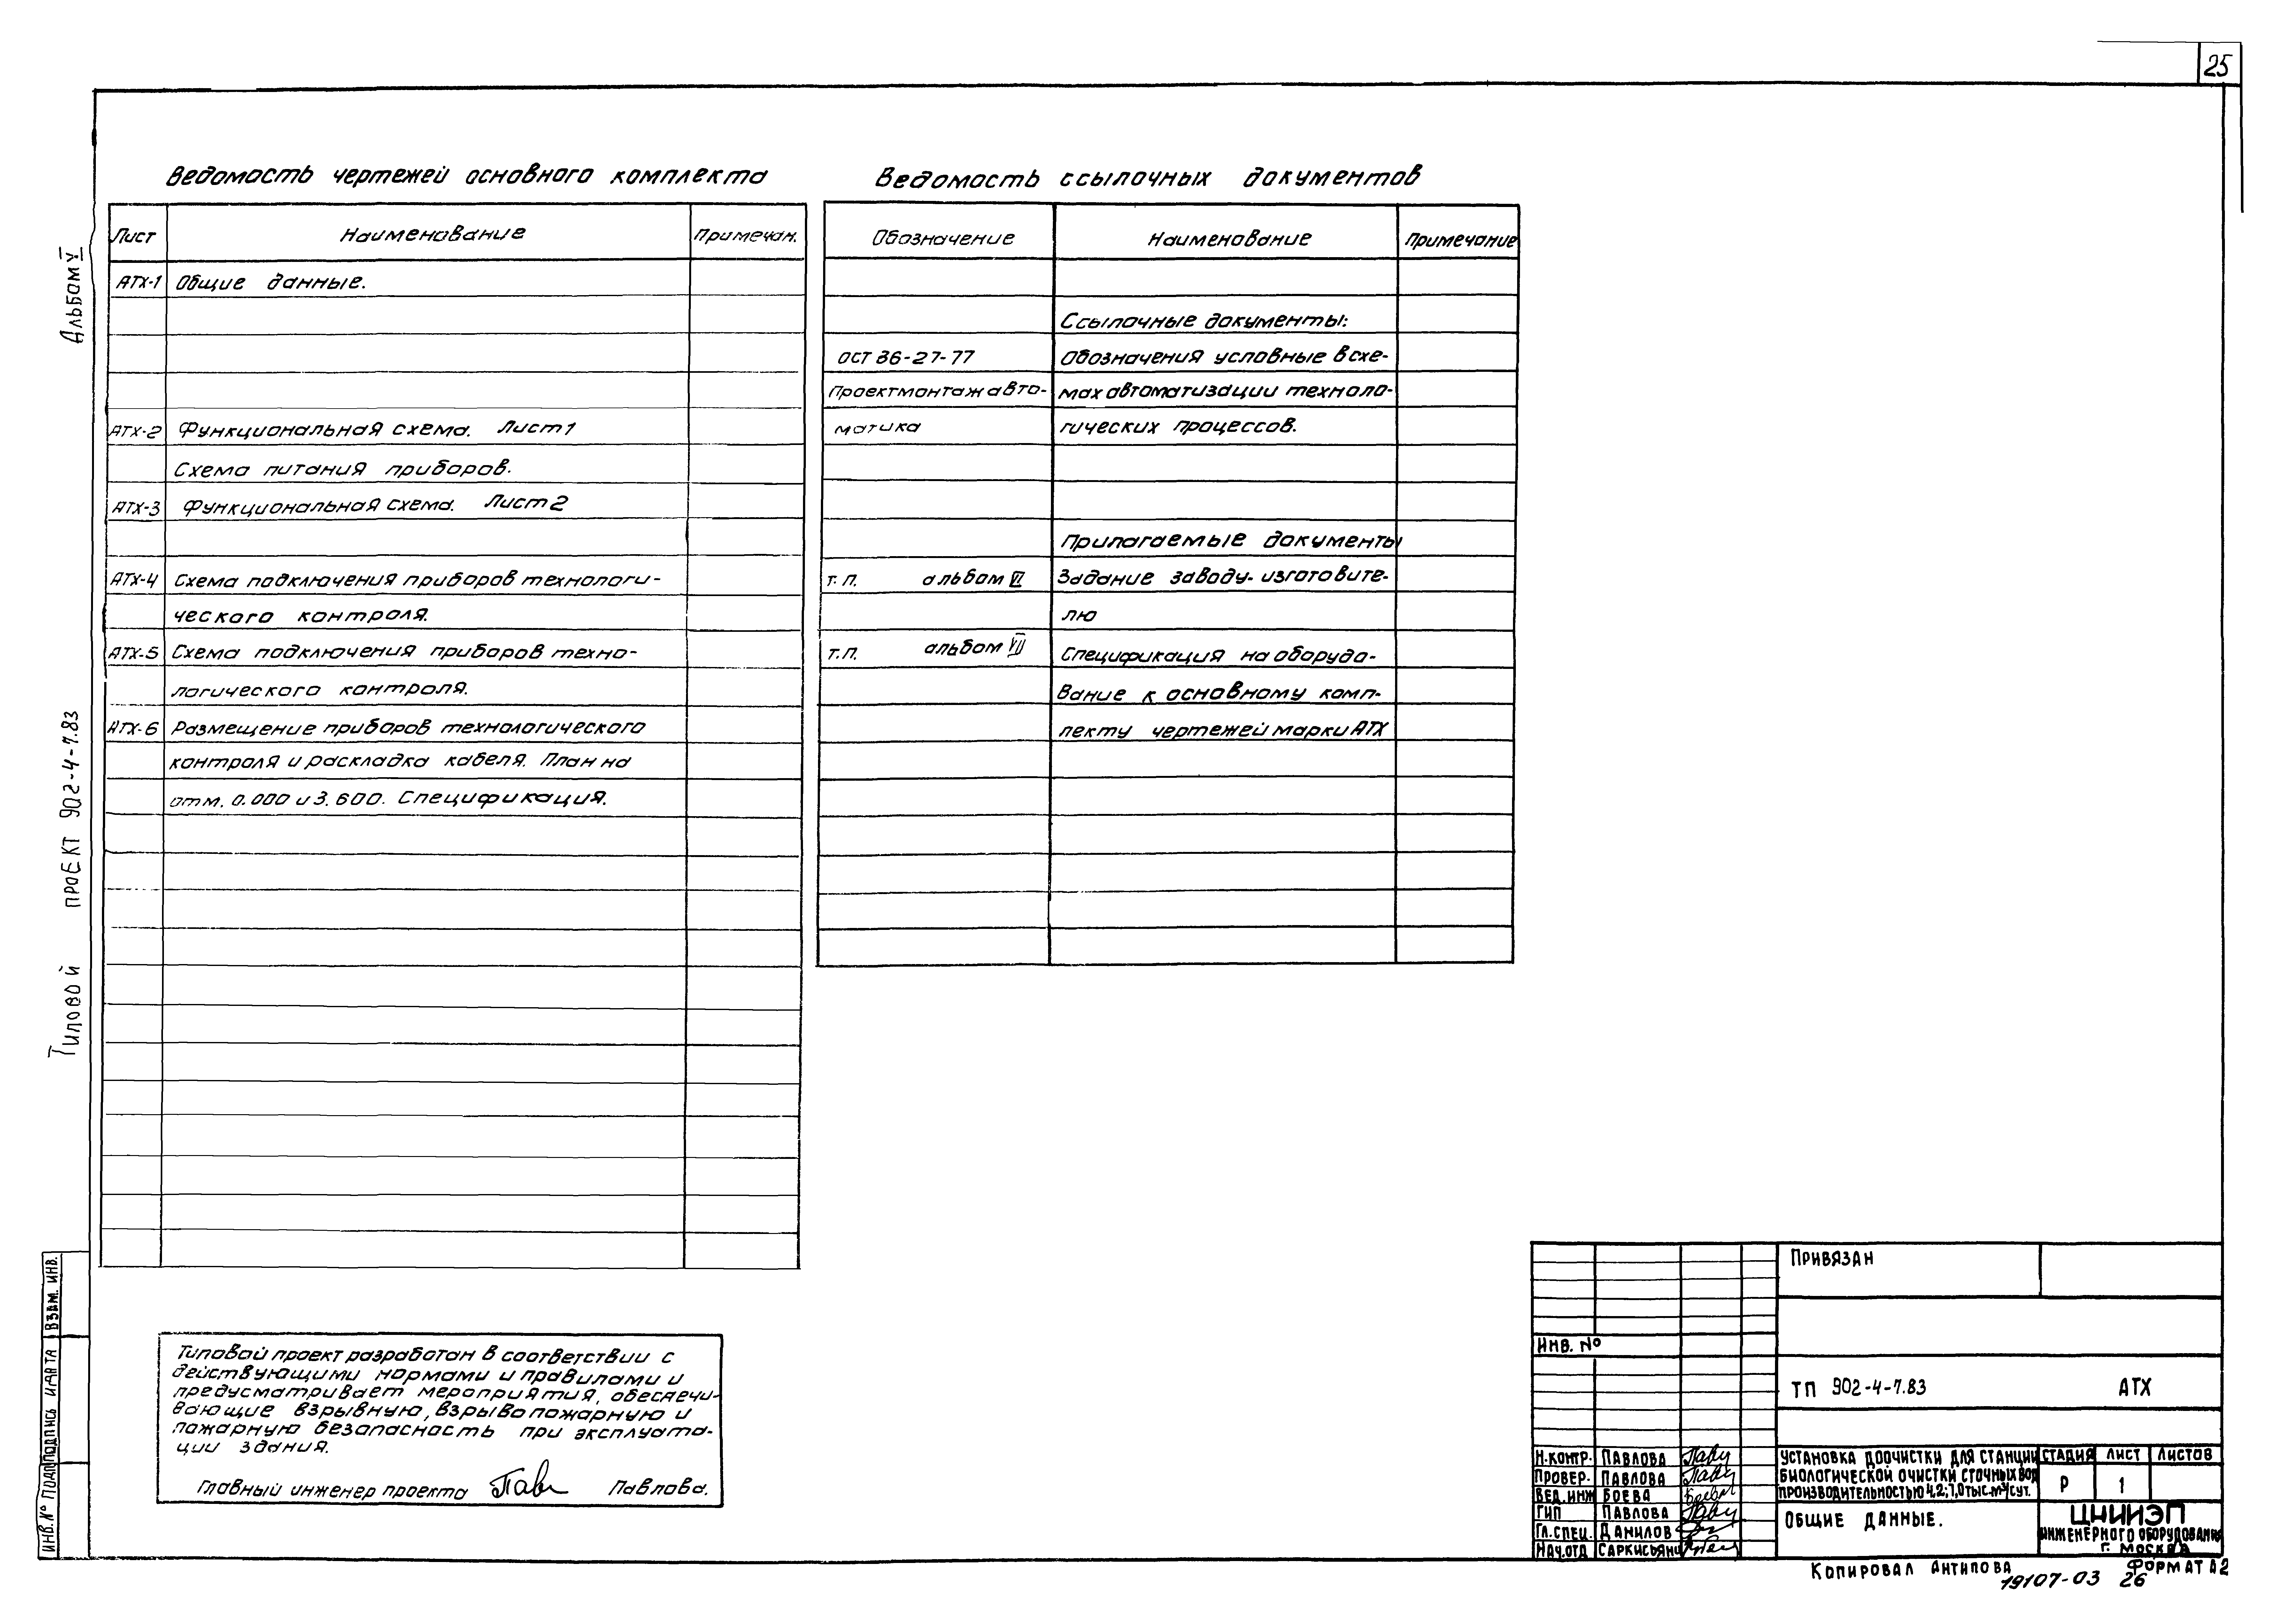 25
Ведомость чертежей основного комплекта
Лист Наименование Примечан.
АТХ-1 Общие данные.
АТХ-2 Функциональная схема. Лист 1
Схема питания приборов.
АТХ-3 Функциональная схема. Лист 2
АТХ-4 Схема подключения приборов технологи-
ческого контроля.
АТХ-5 Схема подключения приборов техно-
логического контроля.
АТХ-6 Размещение приборов технологического
контроля и раскладка кабеля. План на
отм. 0.000 и 3.600. Спецификация.
Ведомость ссылочных документов
Обозначение Наименование Примечание
Ссылочные документы:
ОСТ 36-27-77 Обозначения условные в схе-
Проектмонтажавто- мах автоматизации техноло-
матика гических процессов.
Прилагаемые документы
т.п. альбом VI Задание заводу-изготовите-
лю
т.п. альбом VII Спецификация на оборудо-
вание к основному комп-
лекту чертежей марки АТХ
Типовой проект разработан в соответствии с
действующими нормами и правилами и
предусматривает мероприятия, обеспечи-
вающие взрывную, взрывопожарную и
пожарную безопасность при эксплуата-
ции здания.
Главный инженер проекта Павлова.
Альбом V
Типовой проект 902-4-7.83
Взам. инв.
Подпись и дата
Инв. № подл
Привязан
Инв. №
ТП 902-4-7.83 АТХ
Н.контр. Павлова
Провер. Павлова
Вед.инж Боева
ГИП Павлова
Гл.спец. Данилов
Нач.отд Саркисьянц
Установка доочистки для станции
биологической очистки сточных вод
производительностью 4,2; 7,0 тыс.м³/сут.
Стадия Лист Листов
Р 1
Общие данные.
ЦНИИЭП
инженерного оборудования
г. Москва
Копировал Антипова Формат А2
19107-03 26